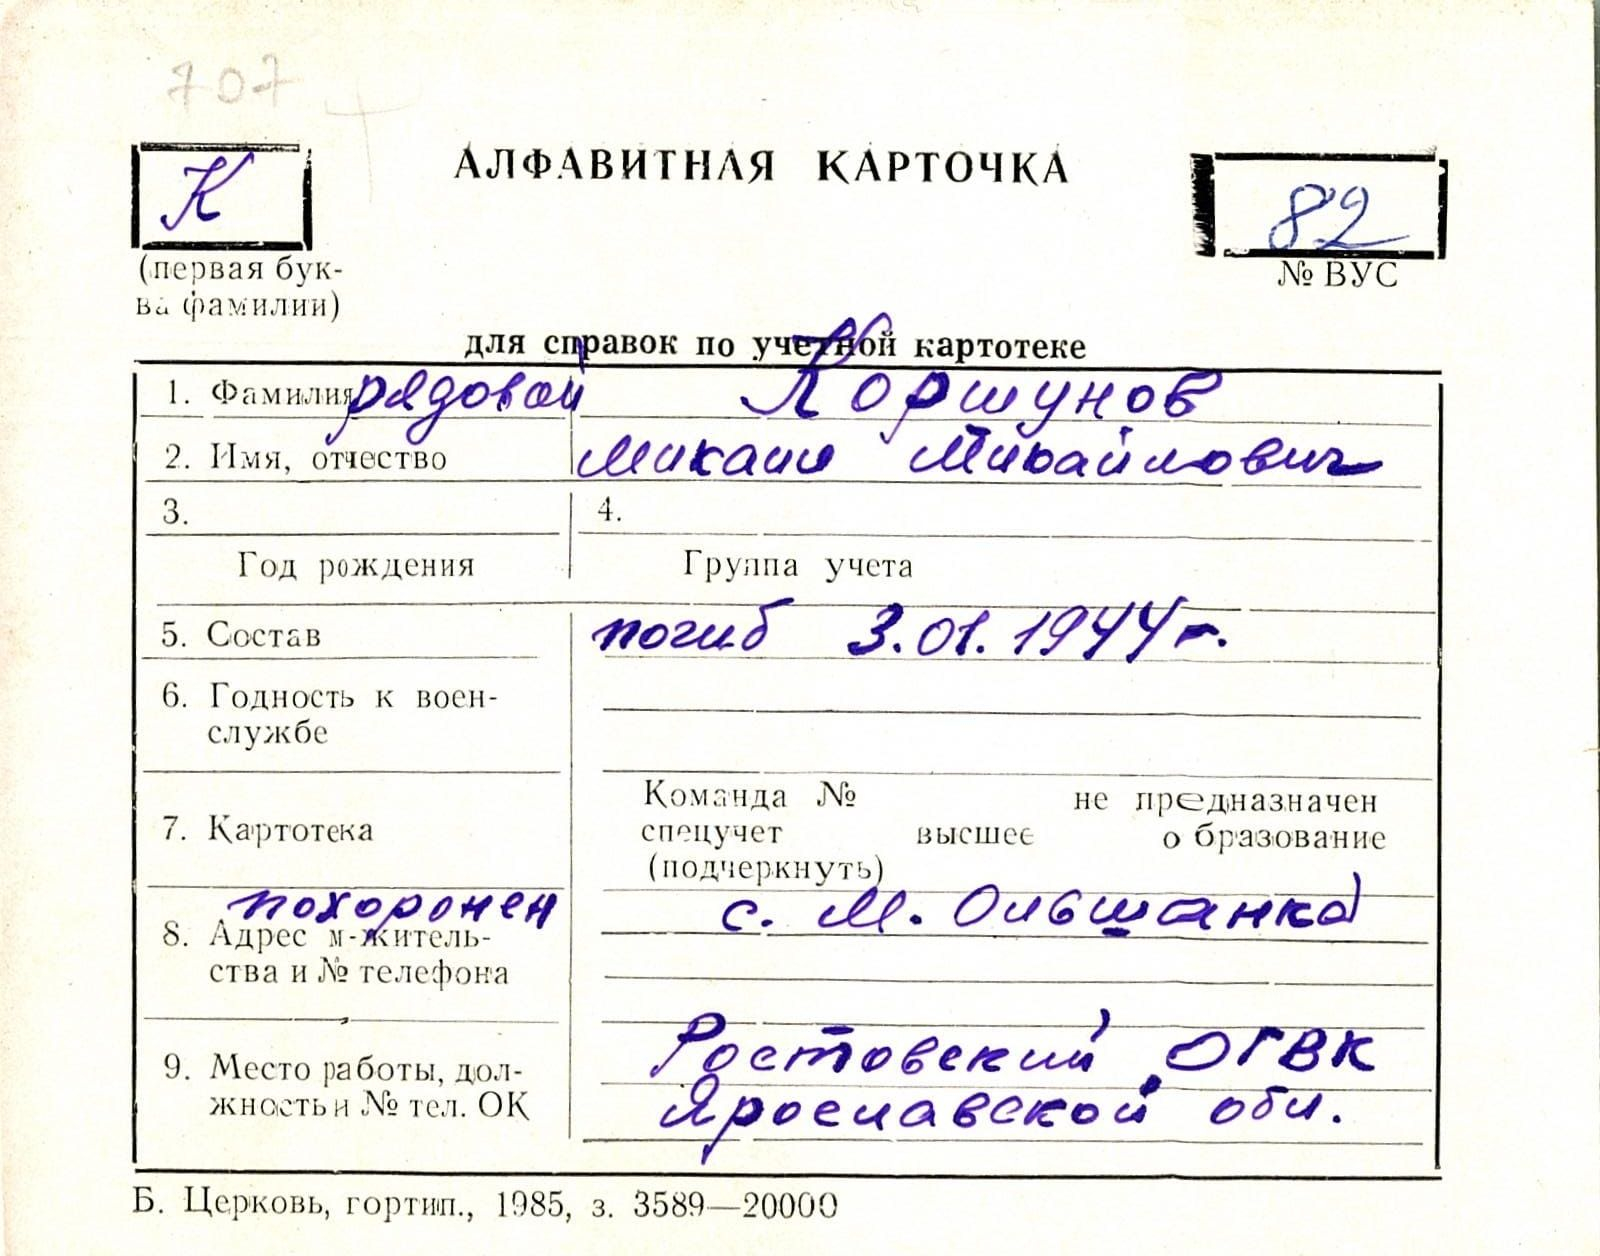 707
АЛФАВИТНАЯ КАРТОЧКА
К
82
(первая бук-
ва фамилии)
№ ВУС
для справок по учетной картотеке
1. Фамилия рядовой Коршунов
2. Имя, отчество Михаил Михайлович
3.
4.
Год рождения
Группа учета
5. Состав погиб 3.01.1944г.
6. Годность к воен-
службе
7. Картотека
Команда № не предназначен
спецучет высшее образование
(подчеркнуть)
похоронен с. М. Ольшанка
8. Адрес м-житель-
ства и № телефона
9. Место работы, дол-
жность и № тел. ОК
Ростовский ОГВК
Ярославской обл.
Б. Церковь, гортип., 1985, з. 3589—20000